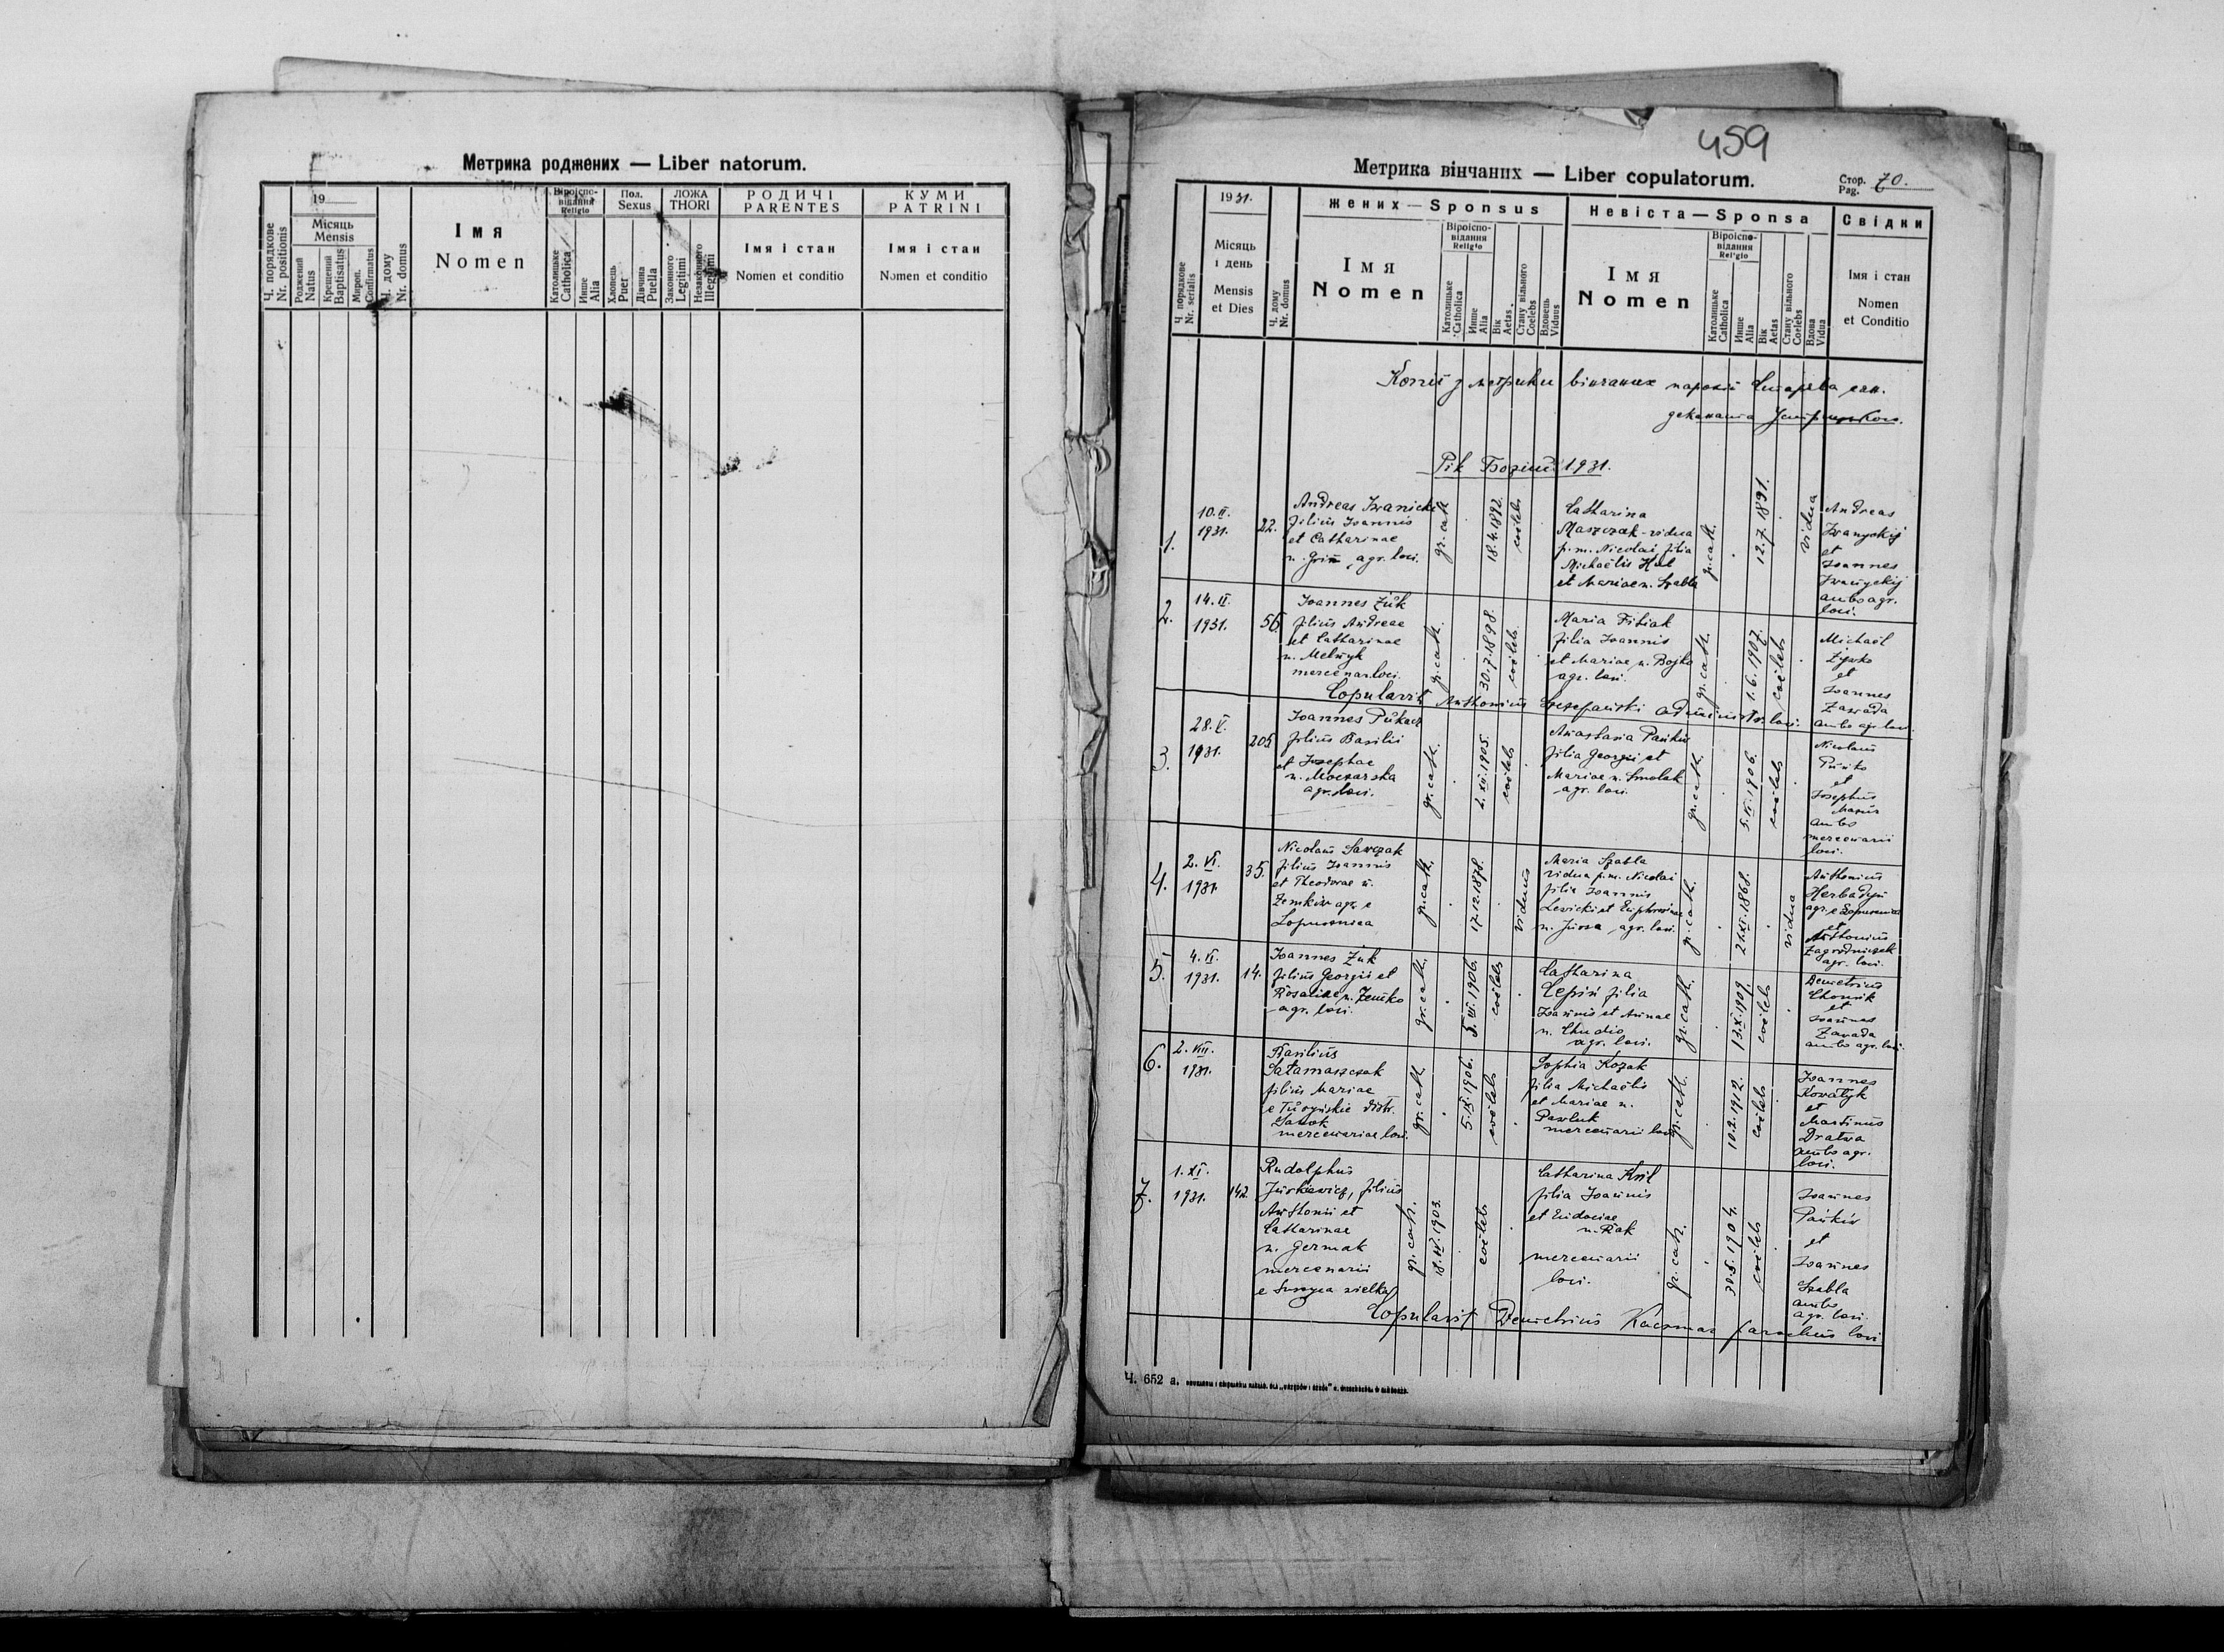 Метрика роджених — Liber natorum.
Ч. порядкове
Nr. positionis
19
Місяць
Mensis
Роджений
Natus
Крещений
Baptisatus
Миров.
Confirmatus
Ч. дому
Nr. domus
Імя
Nomen
Віроіспо-
відання
Religio
Католицьке
Catholica
Инше
Alia
Пол.
Sexus
Хлопець
Puer
Дівчина
Puella
ЛОЖА
THORI
Законного
Legtimi
Незаконного
Illegitimi
РОДИЧІ
PARENTES
Імя і стан
Nomen et conditio
КУМИ
PATRINI
Імя і стан
Nomen et conditio
459
Метрика вінчаних — Liber copulatorum.
Стор.
Pag. 70.
Ч. порядкове
Nr. serialis
1931.
Місяць
і день
Mensis
et Dies
Ч. дому
Nr. domus
Жених — Sponsus
Імя
Nomen
Віроіспо-
відання
Religio
Католицьке
Catholica
Инше
Alia
Вік
Aetas.
Стану вільного
Coelebs
Вдовець
Viduus
Невіста — Sponsa
Імя
Nomen
Віроіспо-
відання
Religio
Католицьке
Catholica
Инше
Alia
Вік
Aetas
Стану вільного
Coelebs
Вдова
Vidua
Свідки
Імя і стан
Nomen
et Conditio
Копії з метрики вінчаних парохії
деканата
Рік Божий 1931.
1.
10.II.
1931.
22.
Andreas Iwanicki
filius Ioannis
et Catharinae
n. Grim, agr. loci.
gr. cath.
18.4.1892.
coelebs
Catharina
Maszczak-vidua
p.m. Nicolai filia
Michaëlis Hul
et Mariae n. Szabla
gr. cath.
12.7.1891.
vidua
Andreas
Iwanyckij
et
Ioannes
Iwanyckij
ambo agr.
loci.
2.
14.II.
1931.
56.
Ioannes Żuk
filius Andreae
et Catharinae
n. Melnyk
mercenar. loci.
gr. cath.
30.7.1898.
coelebs
Maria Fitiak
filia Ioannis
et Mariae n. Bojko
agr. loci.
gr. cath.
1.6.1907.
coelebs
Michaël
et
Ioannes
Zawada
ambo agr. loci
Copulavit Anthonius Szczepański administr. loci.
3.
28.V.
1931.
205
Ioannes Pukacz
filius Basilii
et Josephae
n. Moczarska
agr. loci.
gr. cath.
2.XII.1905.
coelebs
Anastasia Pańkiw
filia Georgii et
Mariae n. Smolak
agr. loci.
gr. cath.
5.VI.1906.
coelebs
Nicolaus
et
Josephus
Mazur
ambo
mercenarii
loci.
4.
2.VI.
1931.
35.
Nicolaus Sawczak
filius Ioannis
et Theodorae n.
Zemkiw agr. e
Łopusznica
gr. cath.
17.12.1878.
viduus
Maria Szabla
vidua p.m. Nicolai
filia Ioannis
Lewicki et Euphrosinae
n. Jursa, agr. loci.
gr. cath.
21.XI.1868.
vidua
Anthonius
agr. e Łopusznica
et
Anthonius
Zagrodniczek
agr. loci.
5.
4.VI.
1931.
14.
Ioannes Żuk
filius Georgii et
Rosaliae n. Zeńko
agr. loci.
gr. cath.
5.VI.1906.
coelebs
Catharina
filia
Ioannis et Annae
n. Chudio
agr. loci.
gr. cath.
13.X.1909.
coelebs
Demetrius
et
Ioannes
Zawada
ambo agr. loci.
6.
2.VIII.
1931.
Basilius
Sałamaszczak
filius Mariae
distr.
Sanok
mercenariae loci.
gr. cath.
5.IX.1906.
coelebs
Sophia Kozak
filia Michaëlis
et Mariae n.
Pawluk
mercenarii loci
gr. cath.
10.2.1912.
coelebs
Ioannes
Kowalyk
et
Martinus
Dratwa
ambo agr.
loci.
7.
1.XI.
1931.
142
Rudolphus
Jurkiewicz, filius
Anthonii et
Catharinae
n. Germak
mercenarii
gr. cath.
18.IV.1903.
coelebs
Catharina Kril
filia Ioannis
et Eudociae
n. Rak
mercenarii
loci.
gr. cath.
30.5.1904.
coelebs
Ioannes
Pańkiw
et
Ioannes
Szabla
ambo
agr. loci.
Copulavit Demetrius Kaczmar parochus loci
Ч. 652 a.